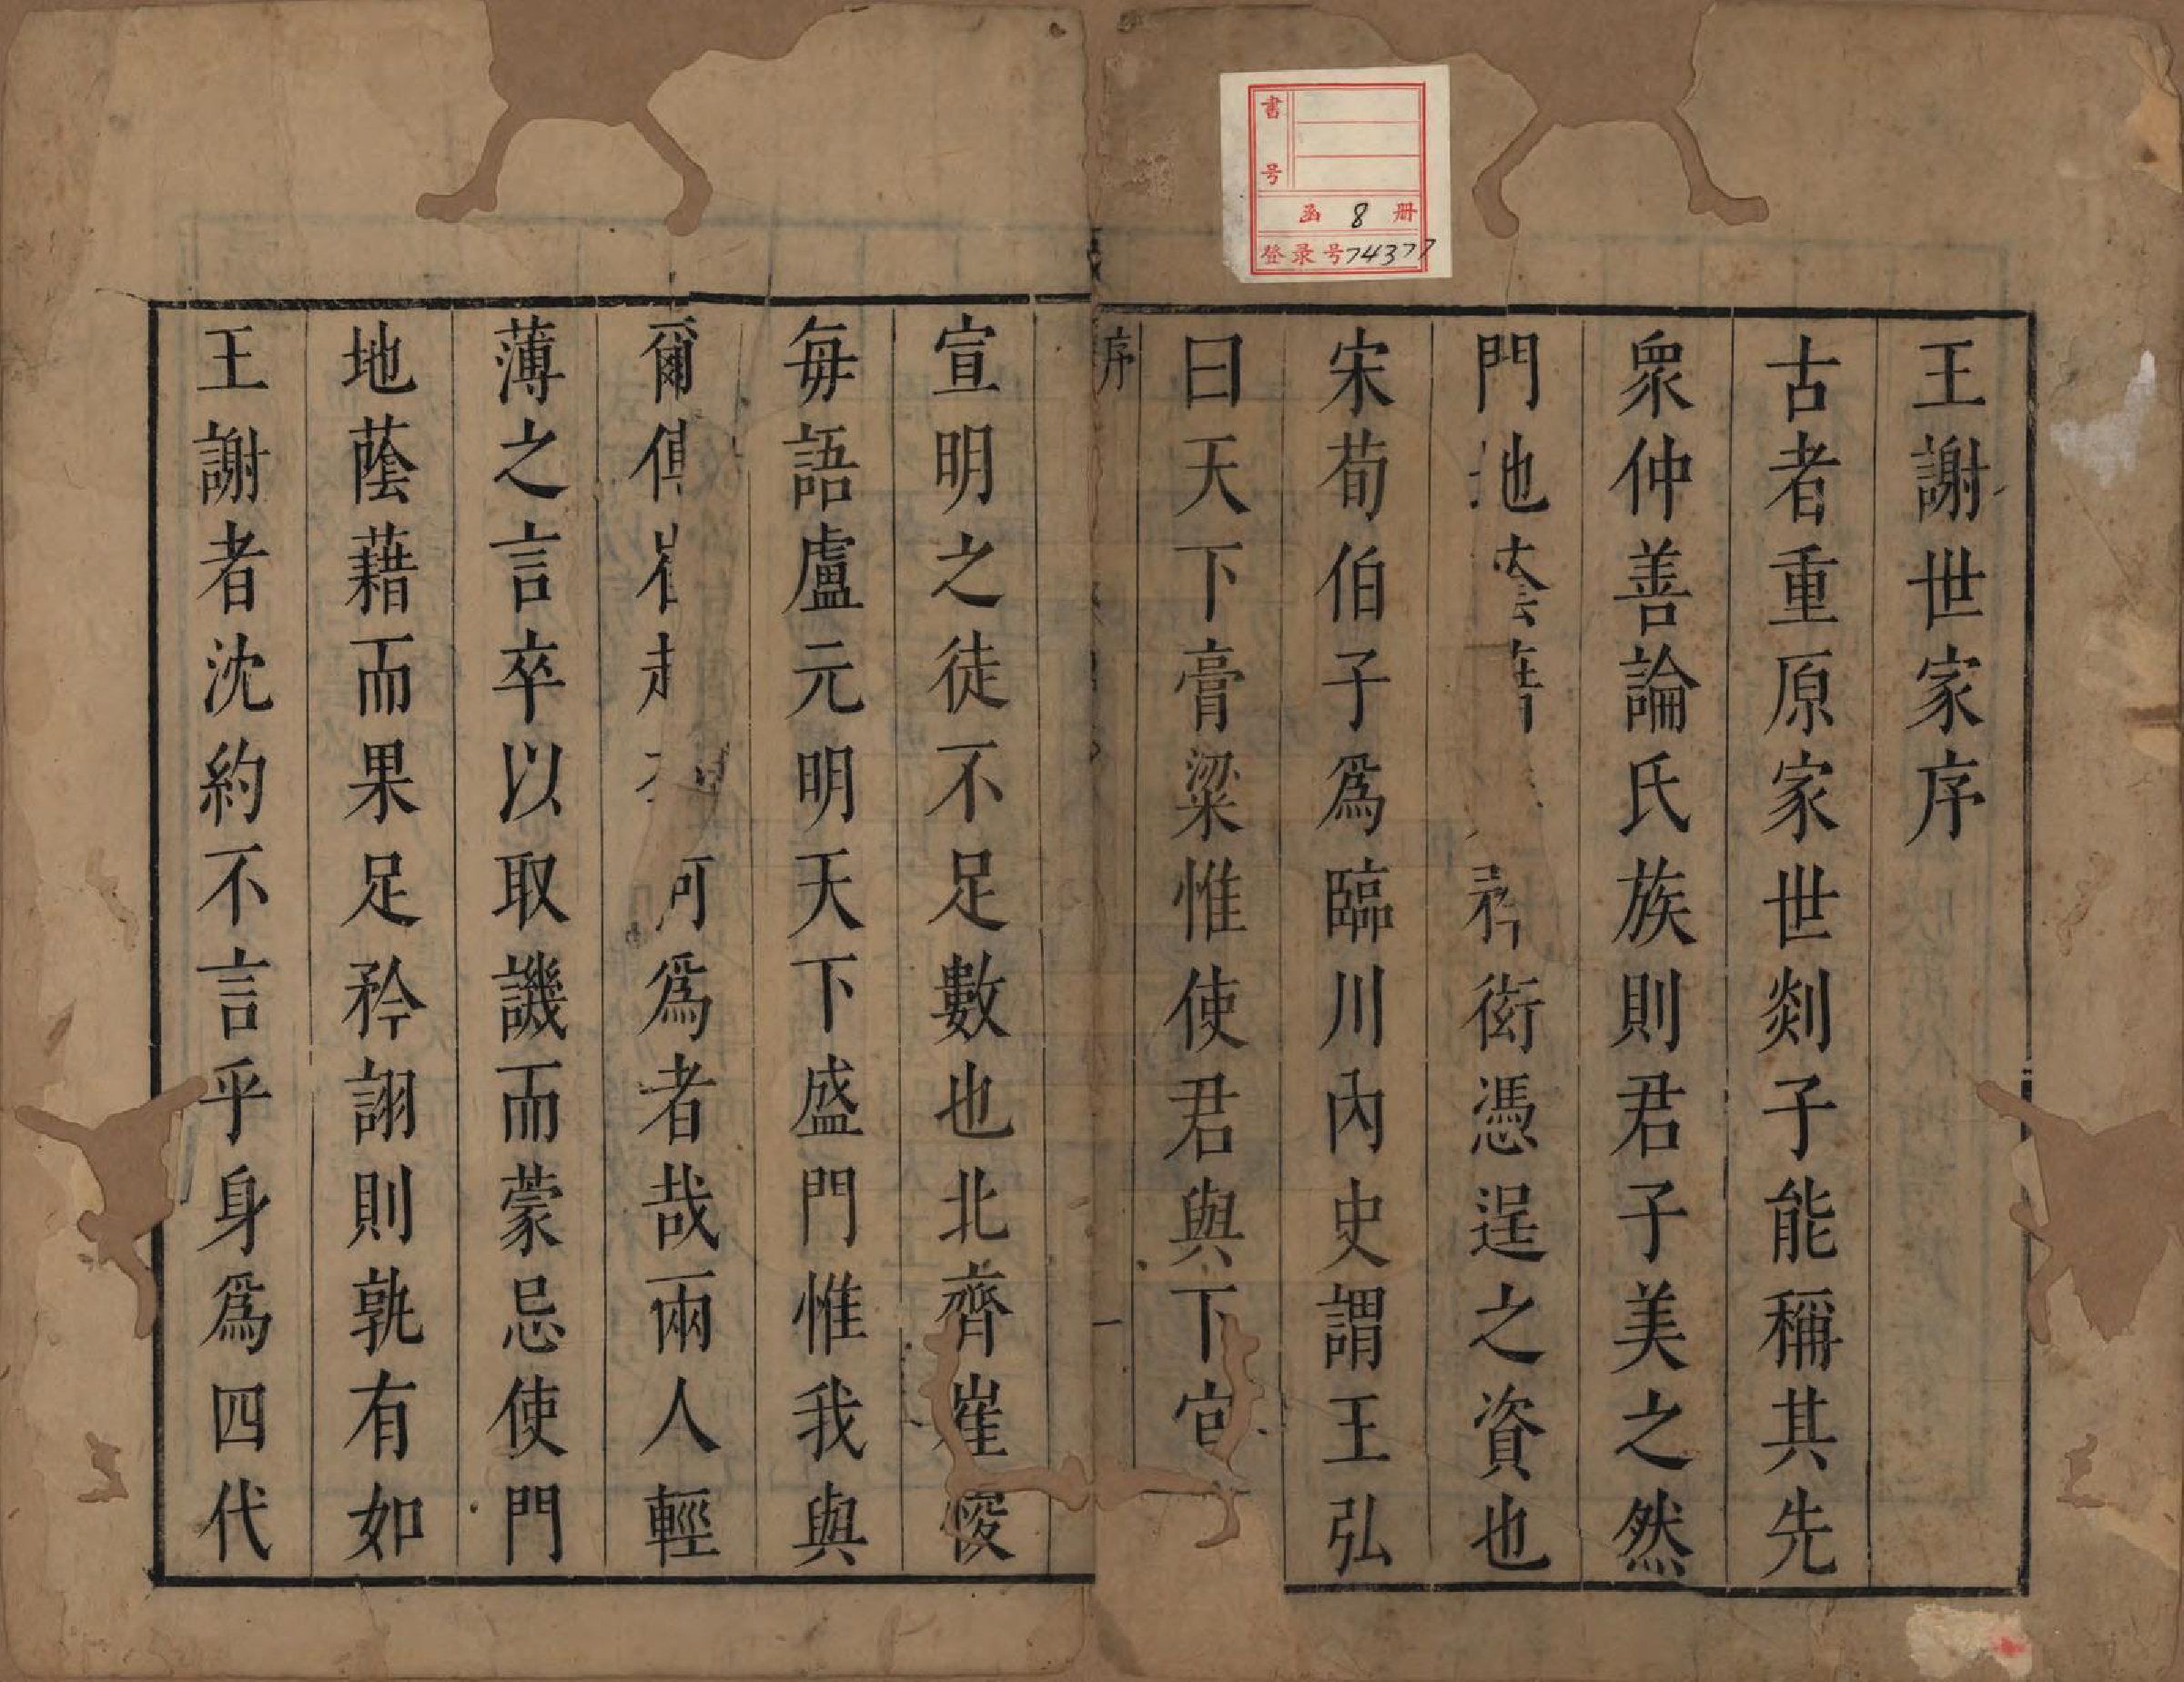 王謝世家序
古者重原家世剡子能稱其先
衆仲善論氏族則君子美之然
門地蔭藉 矜衒憑逞之資也
宋荀伯子爲臨川內史謂王弘
曰天下膏粱惟使君與下官
序
一
宣明之徒不足數也北齊崔㥄
毎語盧元明天下盛門惟我與
爾 崔趙 何爲者哉兩人輕
薄之言卒以取譏而蒙忌使門
地蔭藉而果足矜詡則孰有如
王謝者沈約不言乎身爲四代
書号
函 8 册
登录号74377